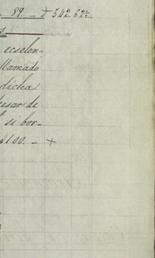 89. - + 542 577
escelen-
llamado
dicha
pesar de
l se bor-
4100. - +